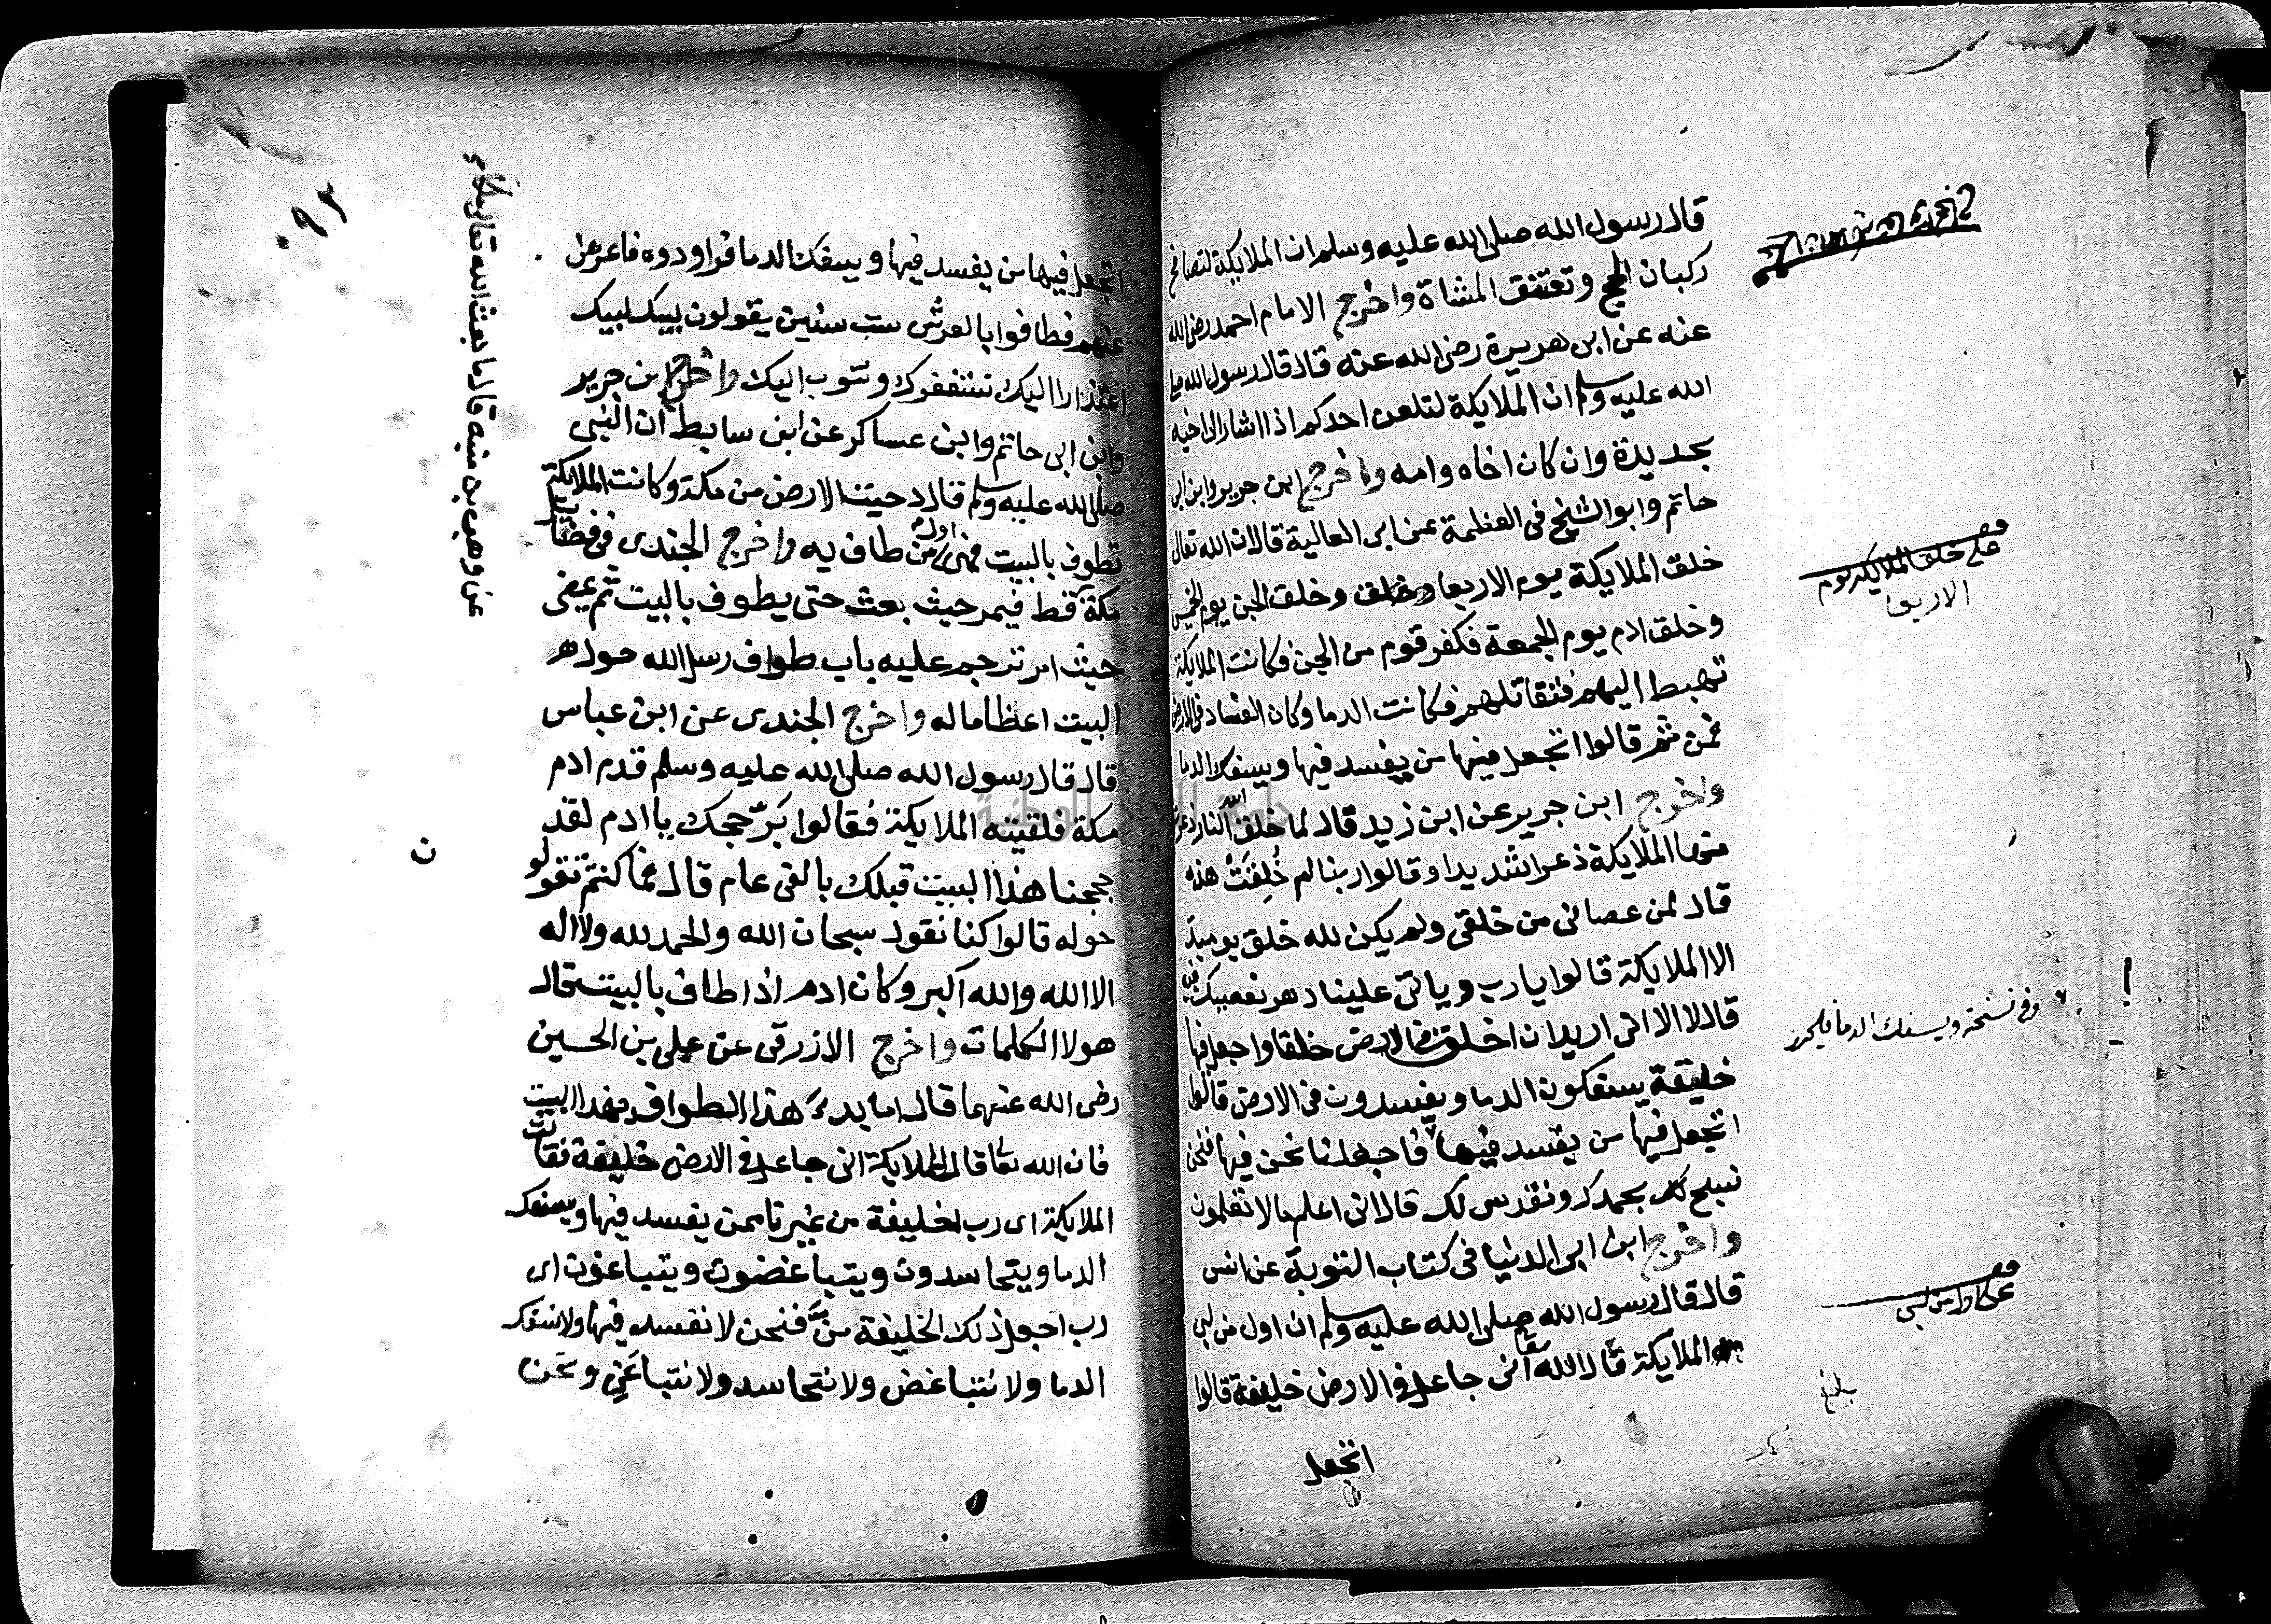 قال رسول الله صلى الله عليه وسلم ان الملايكة لتصافح
ركبان الحج وتعتنق المشاة واخرج الامام احمد رضى الله
عنه عن ابى هريرة رضى الله عنه قال قال رسول الله صلى
الله عليه وسلم ان الملايكة لتلعن احدكم اذا اشار الى اخيه
بحديدة وان كان اخاه وامه واخرج ابن جرير وابن ابى
حاتم وابو الشيخ فى العظمة عن ابى العالية قال ان الله تعالى
خلق الملايكة يوم الاربعا وخلق الجن يوم الخميس
وخلق ادم يوم الجمعة فكفر قوم من الجن فكانت الملايكة
تهبط اليهم فتقاتلهم فكانت الدما وكان الفساد فى الارض
فمن ثم قالوا اتجعل فيها من يفسد فيها ويسفك الدما
واخرج ابن جرير عن ابن زيد قال لما خلق الله النار ذعرت
منها الملايكة ذعرا شديدا وقالوا ربنا لم خُلِقَتْ هذه
قال لمن عصانى من خلقى ولم يكن لله خلق يوميذ
الا الملايكة قالوا يا رب وياتى علينا دهر نعصيك فيه
قال لا الا انى اريد ان اخلق فى الارض خلقا واجعل فيها
خليقة يسفكون الدما ويفسدون فى الارض قالوا
اتجعل فيها من يفسد فيها فاجعلنا نحن فيها فنحن
نسبح لك بحمدك ونقدس لك قال انى اعلم ما لا تعلمون
واخرج ابن ابى الدنيا فى كتاب التوبة عن انس
قال قال رسول الله صلى الله عليه وسلم ان اول من لبى
الملايكة قال الله تعا انى جاعل فى الارض خليفة قالوا
اتجعل
على خلق الملايكة يوم
الاربعا
وفى نسخة ويسفك الدما فليحرر
على اول من لبى
بلغ
اتجعل فيها من يفسد فيها ويسفك الدما فراودوه فاعرض
عنهم فطافوا بالعرش ست سنين يقولون لبيك لبيك
اعتذارا اليك نستغفرك ونتوب اليك واخرج ابن جرير
وابن ابى حاتم وابن عساكر عن ابن سابط ان النبى
صلى الله عليه وسلم قال دحيت الارض من مكة وكانت الملايكة
تطوف بالبيت فهى اول من طاف به واخرج الجندى فى فضايل
مكة
قط فيمر حيث بعث حتى يطوف بالبيت ثم يمضى
حيث امر ترجم عليه باب طواف رسل الله حول هذا
البيت اعظاما له واخرج الجندى عن ابن عباس
قال قال رسول الله صلى الله عليه وسلم قدم ادم
مكة فلقيته الملايكة فقالوا بَرّ حجك يا ادم لقد
حججنا هذا البيت قبلك بالفى عام قال فما كنتم تقولو
حوله قالوا كنا نقول سبحان الله والحمد لله ولا اله
الا الله والله اكبر وكان ادم اذا طاف بالبيت قال
هولا الكلمات واخرج الازرقى عن على بن الحسين
رضى الله عنهما قال اما بدء هذا الطواف بهذا البيت
فان الله تعا قال للملايكة انى جاعل فى الارض خليفة فقالت
الملايكة اى رب اخليفة من غيرنا ممن يفسد فيها ويسفك
الدما ويتحاسدون ويتباغضون ويتباغون اى
رب اجعل ذلك الخليفة منّا فنحن لا نفسد فيها ولا نسفك
الدما ولا نتباغض ولا نتحاسد ولا نتباغى ونحن
عن وهب بن منبه قال ما بعث الله تعالى ملكا
ن